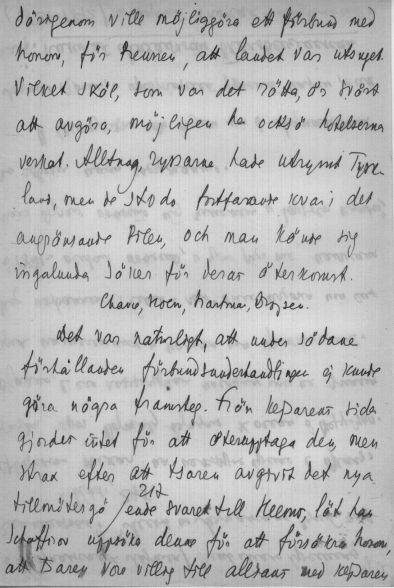 därigenom ville möjliggöra ett förbund med
honom, för hennes, att landet var utsuget.
Vilket skäl, som var det rätta, är svårt
att avgöra, möjligen ha också hotelserna
verkat. Alltnog, ryssarna hade utrymt Tysk-
land, men de stodo fortfarande kvar i det
angränsande Polen, och man kände sig
ingalunda säker för deras återkomst.
Chance, Noen, Droysen.
Det var naturligt, att under sådana
förhållanden förbundsunderhandlingen ej kunde
göra några framsteg. Från kejsarens sida
gjordes intet för att återupptaga den, men
strax efter att tsaren avgivit det nya
tillmötesgå
217
ende svaret till
, lät han
Schaffirov uppsöka denne för att försäkra honom,
att tsaren vore villig till allians med kejsaren